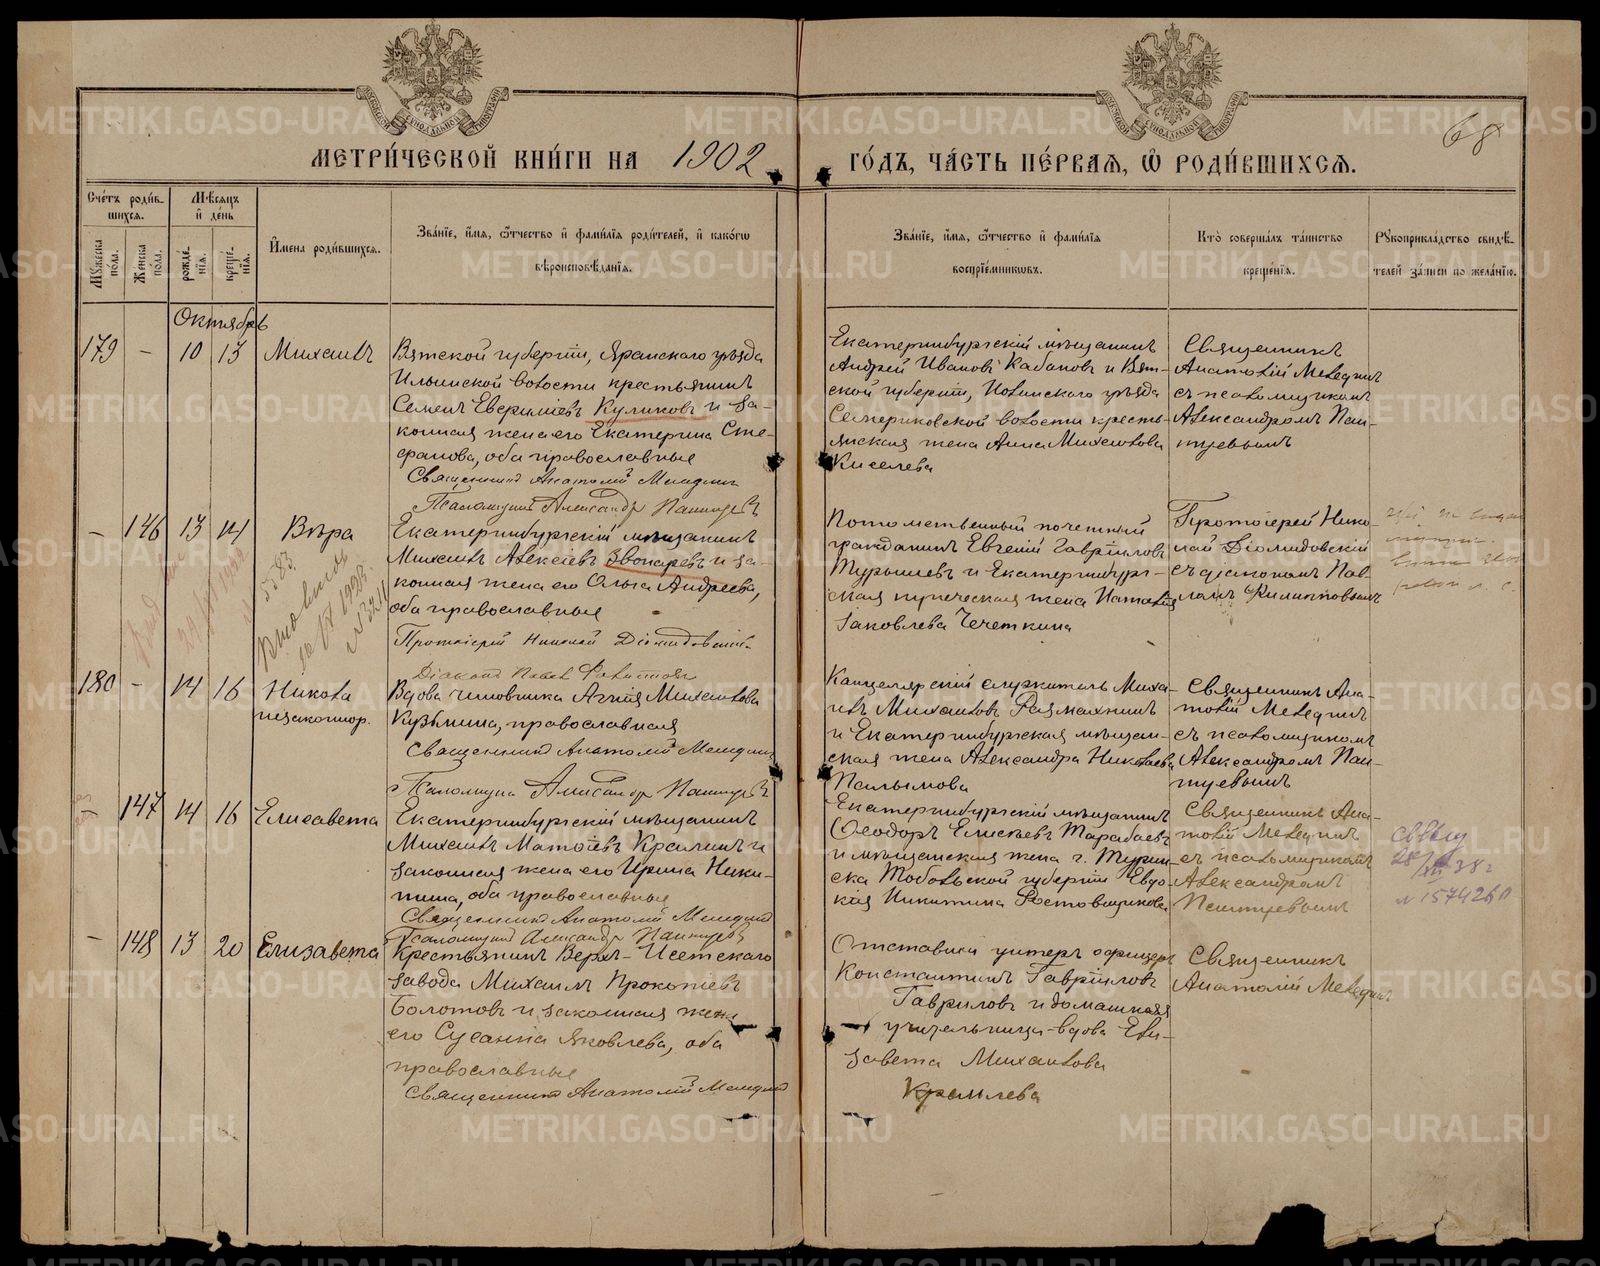 МЕТРИ́ЧЕСКОЙ КНИ́ГИ НА 1902 ГО́ДЪ, ЧА́СТЬ ПЕ́РВАЯ, Ѿ РОДИ́ВШИХСЯ.
68
Сче́тъ роди́вшихся.
Му́жеска по́ла.
Же́нска по́ла.
Мѣ́сяцъ и̂ де́нь
рожде́нїя.
креще́нїя.
И̂мена роди́вшихся.
Зва́нїе, и̂мя, ѻ҆́тчество и̂ фами́лїя роди́телей, и̂ како́гѡ
вѣроисповѣ́данїя.
Зва́нїе, и̂мя, ѻ҆́тчество и̂ фами́лїя
воспрїе́мниковъ.
Кто̀ соверша́лъ та́инство
креще́нїя.
Рꙋкоприкла́дство свидѣ́-
телей за́писи по жела́нїю.
Октябрь
179 - 10 13 Михаилъ
Вятской губерніи, Яранскаго уѣзда
Ильинской волости крестьянинъ
Семенъ Евфиміевъ Куликовъ и за-
конная жена его Екатерина Сте-
фанова, оба православные
Священникъ Анатолій Мелединъ
Псаломщикъ Александръ
Екатеринбургскій мѣщанинъ
Андрей Ивановъ Кабановъ и Вят-
ской губерніи, Нолинскаго уѣзда
волости кресть-
янская жена Анна Михаилова
Киселева
Священникъ
Анатолій Мелединъ
съ псаломщикомъ
Александромъ
- 146 13 14 Вѣра
Екатеринбургскій мѣщанинъ
Михаилъ Алексіевъ Звонаревъ и за-
конная жена его Ольга Андреева,
оба православные
Протоіерей Николай Діомидовскій
Діаконъ Павелъ
Потомственный почетный
гражданинъ Евгеній Гавріиловъ
и Екатеринбург-
ская купеческая жена Наталія
Іаковлева Чечеткина
Протоіерей Нико-
лай Діомидовскій
съ діакономъ Пав-
ломъ
180 - 14 16 Никола
незаконнор.
Вдова чиновника Агнія Михаилова
Кузьмина, православная
Священникъ Анатолій Мелединъ
Псаломщикъ Александръ
Канцелярскій служитель Миха-
илъ Михаиловъ Размахнинъ
и Екатеринбургская мѣщан-
ская жена Александра Николаева
Священникъ Ана-
толій Мелединъ
съ псаломщикомъ
Александромъ
- 147 14 16 Елисавета
Екатеринбургскій мѣщанинъ
Михаилъ Матѳіевъ и
законная жена его Ирина Ники-
тина, оба православные
Священникъ Анатолій Мелединъ
Псаломщикъ Александръ
Екатеринбургскій мѣщанинъ
Ѳеодоръ Елисѣевъ Тарабаевъ
и мѣщанская жена г. Турин-
ска Тобольской губерніи Евдо-
кія Никитина Ростовщикова
Священникъ Ана-
толій Мелединъ
съ псаломщикомъ
Александромъ
- 148 13 20 Елизавета
Крестьянинъ Верхъ-Исетскаго
завода Михаилъ Прокопіевъ
Болотовъ и законная жена
его Сусанна Яковлева, оба
православные
Священникъ Анатолій Мелединъ
Отставной унтеръ офицеръ
Константинъ Гавріиловъ
Гавриловъ и домашняя
учительница-вдова Ели-
завета Михаилова
Кремлева
Священникъ
Анатолій Мелединъ
METRIKI.GASO-URAL.RU